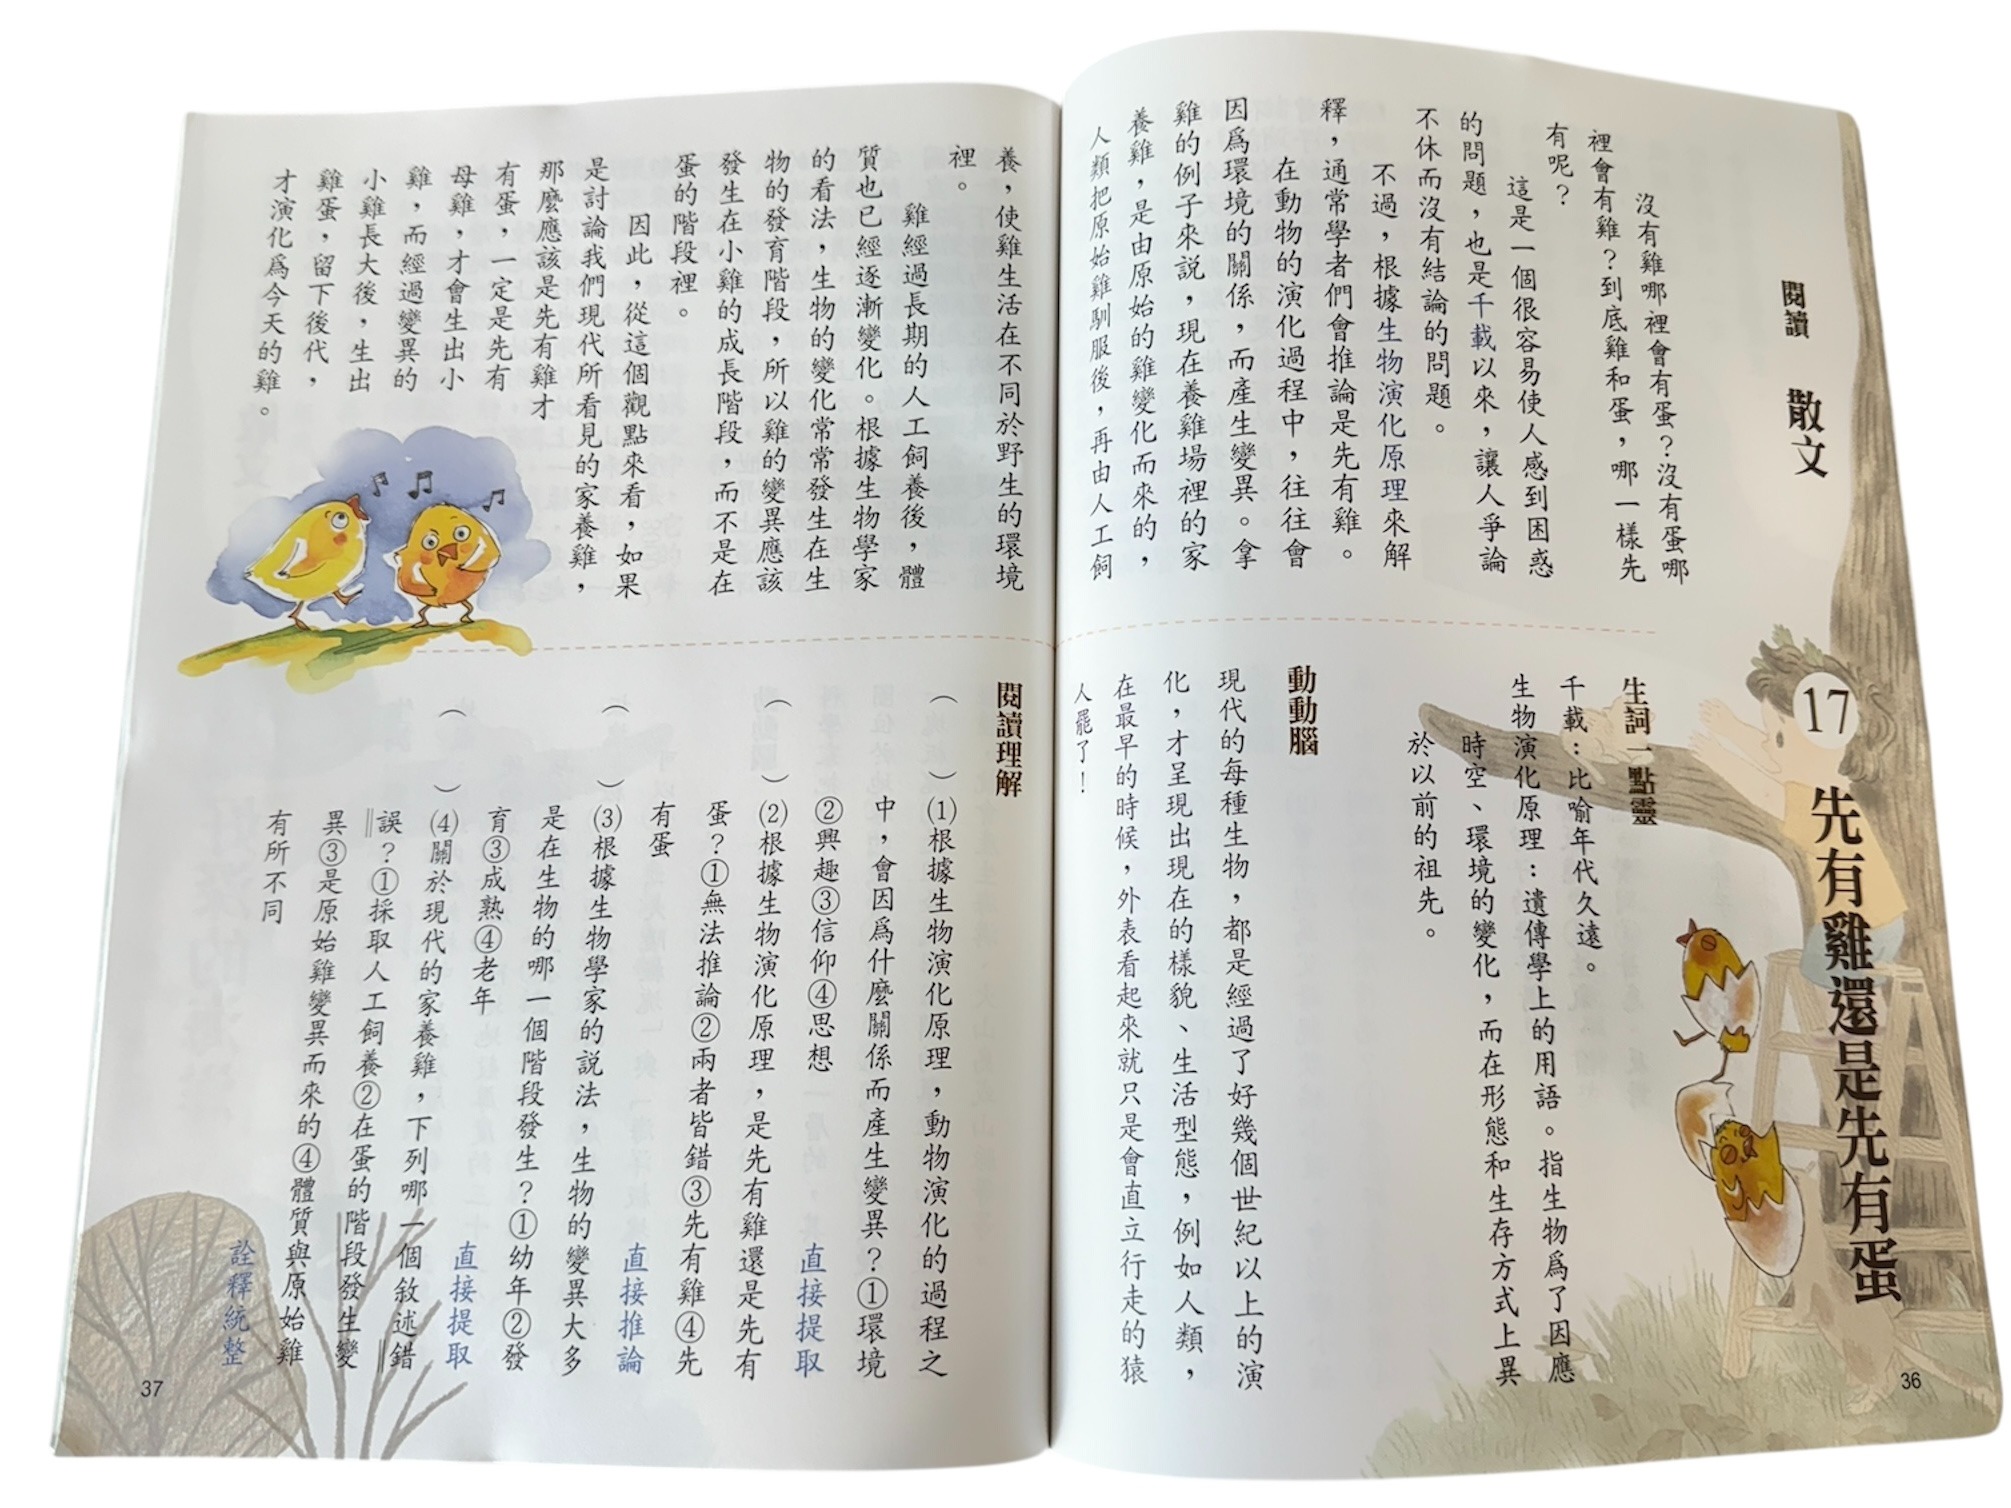 閱讀 散文
17 先有雞還是先有蛋
沒有雞哪裡會有蛋？沒有蛋哪
裡會有雞？到底雞和蛋，哪一樣先
有呢？
這是一個很容易使人感到困惑
的問題，也是千載以來，讓人爭論
不休而沒有結論的問題。
不過，根據生物演化原理來解
釋，通常學者們會推論是先有雞。
在動物的演化過程中，往往會
因為環境的關係，而產生變異。拿
雞的例子來說，現在養雞場裡的家
養雞，是由原始的雞變化而來的，
人類把原始雞馴服後，再由人工飼
生詞一點靈
千載：比喻年代久遠。
生物演化原理：遺傳學上的用語。指生物為了因應
時空、環境的變化，而在形態和生存方式上異
於以前的祖先。
動動腦
現代的每種生物，都是經過了好幾個世紀以上的演
化，才呈現出現在的樣貌、生活型態，例如人類，
在最早的時候，外表看起來就只是會直立行走的猿
人罷了！
36
養，使雞生活在不同於野生的環境
裡。
雞經過長期的人工飼養後，體
質也已經逐漸變化。根據生物學家
的看法，生物的變化常常發生在生
物的發育階段，所以雞的變異應該
發生在小雞的成長階段，而不是在
蛋的階段裡。
因此，從這個觀點來看，如果
是討論我們現代所看見的家養雞，
那麼應該是先有雞才
有蛋，一定是先有
母雞，才會生出小
雞，而經過變異的
小雞長大後，生出
雞蛋，留下後代，
才演化為今天的雞。
閱讀理解
（ ）⑴根據生物演化原理，動物演化的過程之
中，會因為什麼關係而產生變異？①環境
②興趣③信仰④思想 直接提取
（ ）⑵根據生物演化原理，是先有雞還是先有
蛋？①無法推論②兩者皆錯③先有雞④先
有蛋 直接推論
（ ）⑶根據生物學家的說法，生物的變異大多
是在生物的哪一個階段發生？①幼年②發
育③成熟④老年 直接提取
（ ）⑷關於現代的家養雞，下列哪一個敘述錯
誤？①採取人工飼養②在蛋的階段發生變
異③是原始雞變異而來的④體質與原始雞
有所不同 詮釋統整
37